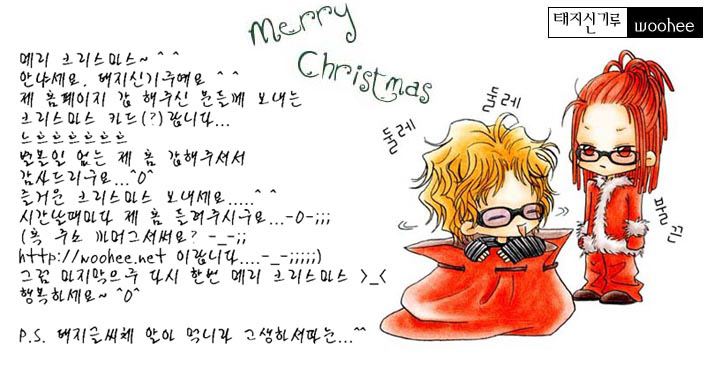 태지신기루 woohee
Merry
Christmas
메리 크리스마스~ ^ ^
안냐세요. 태지신기루예요 ^ ^
제 홈페이지 감 해주신 분들께 보내는
크리스마스 카드(?)랍니다...
느흐흐흐흐흐흐
번복인 없는 제 홈 감해주셔서
감사드리구요...^O^
즐거운 크리스마스 보내세요.....^ ^
시간날때마다 제 홈 들려주시구요...-O-;;;
(혹 주소 까머그셔써요? -_-;;
http://woohee.net 이랍니다....-_-;;;;;)
그럼 마지막으루 다시 한번 메리 크리스마스 >_<
행복하세요~ ^O^
P.S. 태지글씨체 알아 먹니라 고생하셔따는...^^
둘레
둘레
빠직